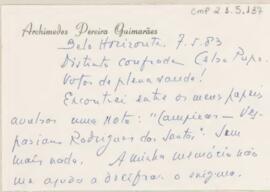 CMP 2.1.5.137
Archimedes Pereira Guimarães
Belo Horizonte, 7.5.83
Distinto confrade Celso Pupo.
Votos de plena saude!
Encontrei entre os meus papeis
avulsos uma nota: "Campinas – Ves-
pasiano Rodrigues dos Santos". Sem
mais nada. A minha memória não
me ajuda a decifrar o enigma.